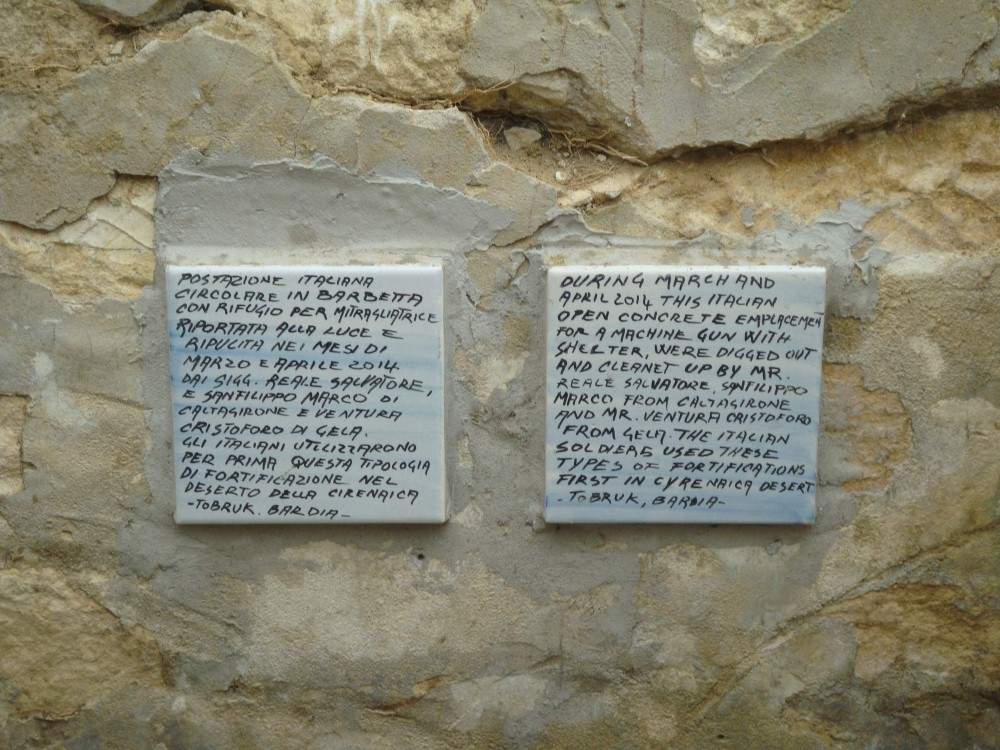 POSTAZIONE ITALIANA
CIRCOLARE IN BARBETTA
CON RIFUGIO PER MITRAGLIATRICE
RIPORTATA ALLA LUCE E
RIPULITA NEI MESI DI
MARZO E APRILE 2014
DAI SIGG. REALE SALVATORE,
E SANFILIPPO MARCO DI
CALTAGIRONE E VENTURA
CRISTOFORO DI GELA.
GLI ITALIANI UTILIZZARONO
PER PRIMA QUESTA TIPOLOGIA
DI FORTIFICAZIONE NEL
DESERTO DELLA CIRENAICA
-TOBRUK. BARDIA-
DURING MARCH AND
APRIL 2014 THIS ITALIAN
OPEN CONCRETE EMPLACEMEN
FOR A MACHINE GUN WITH
SHELTER, WERE DIGGED OUT
AND CLEANET UP BY MR.
REALE SALVATORE, SANFILIPPO
MARCO FROM CALTAGIRONE
AND MR. VENTURA CRISTOFORO
FROM GELA. THE ITALIAN
SOLDIERS USED THESE
TYPES OF FORTIFICATIONS
FIRST IN CYRENAICA DESERT
-TOBRUK, BARDIA-